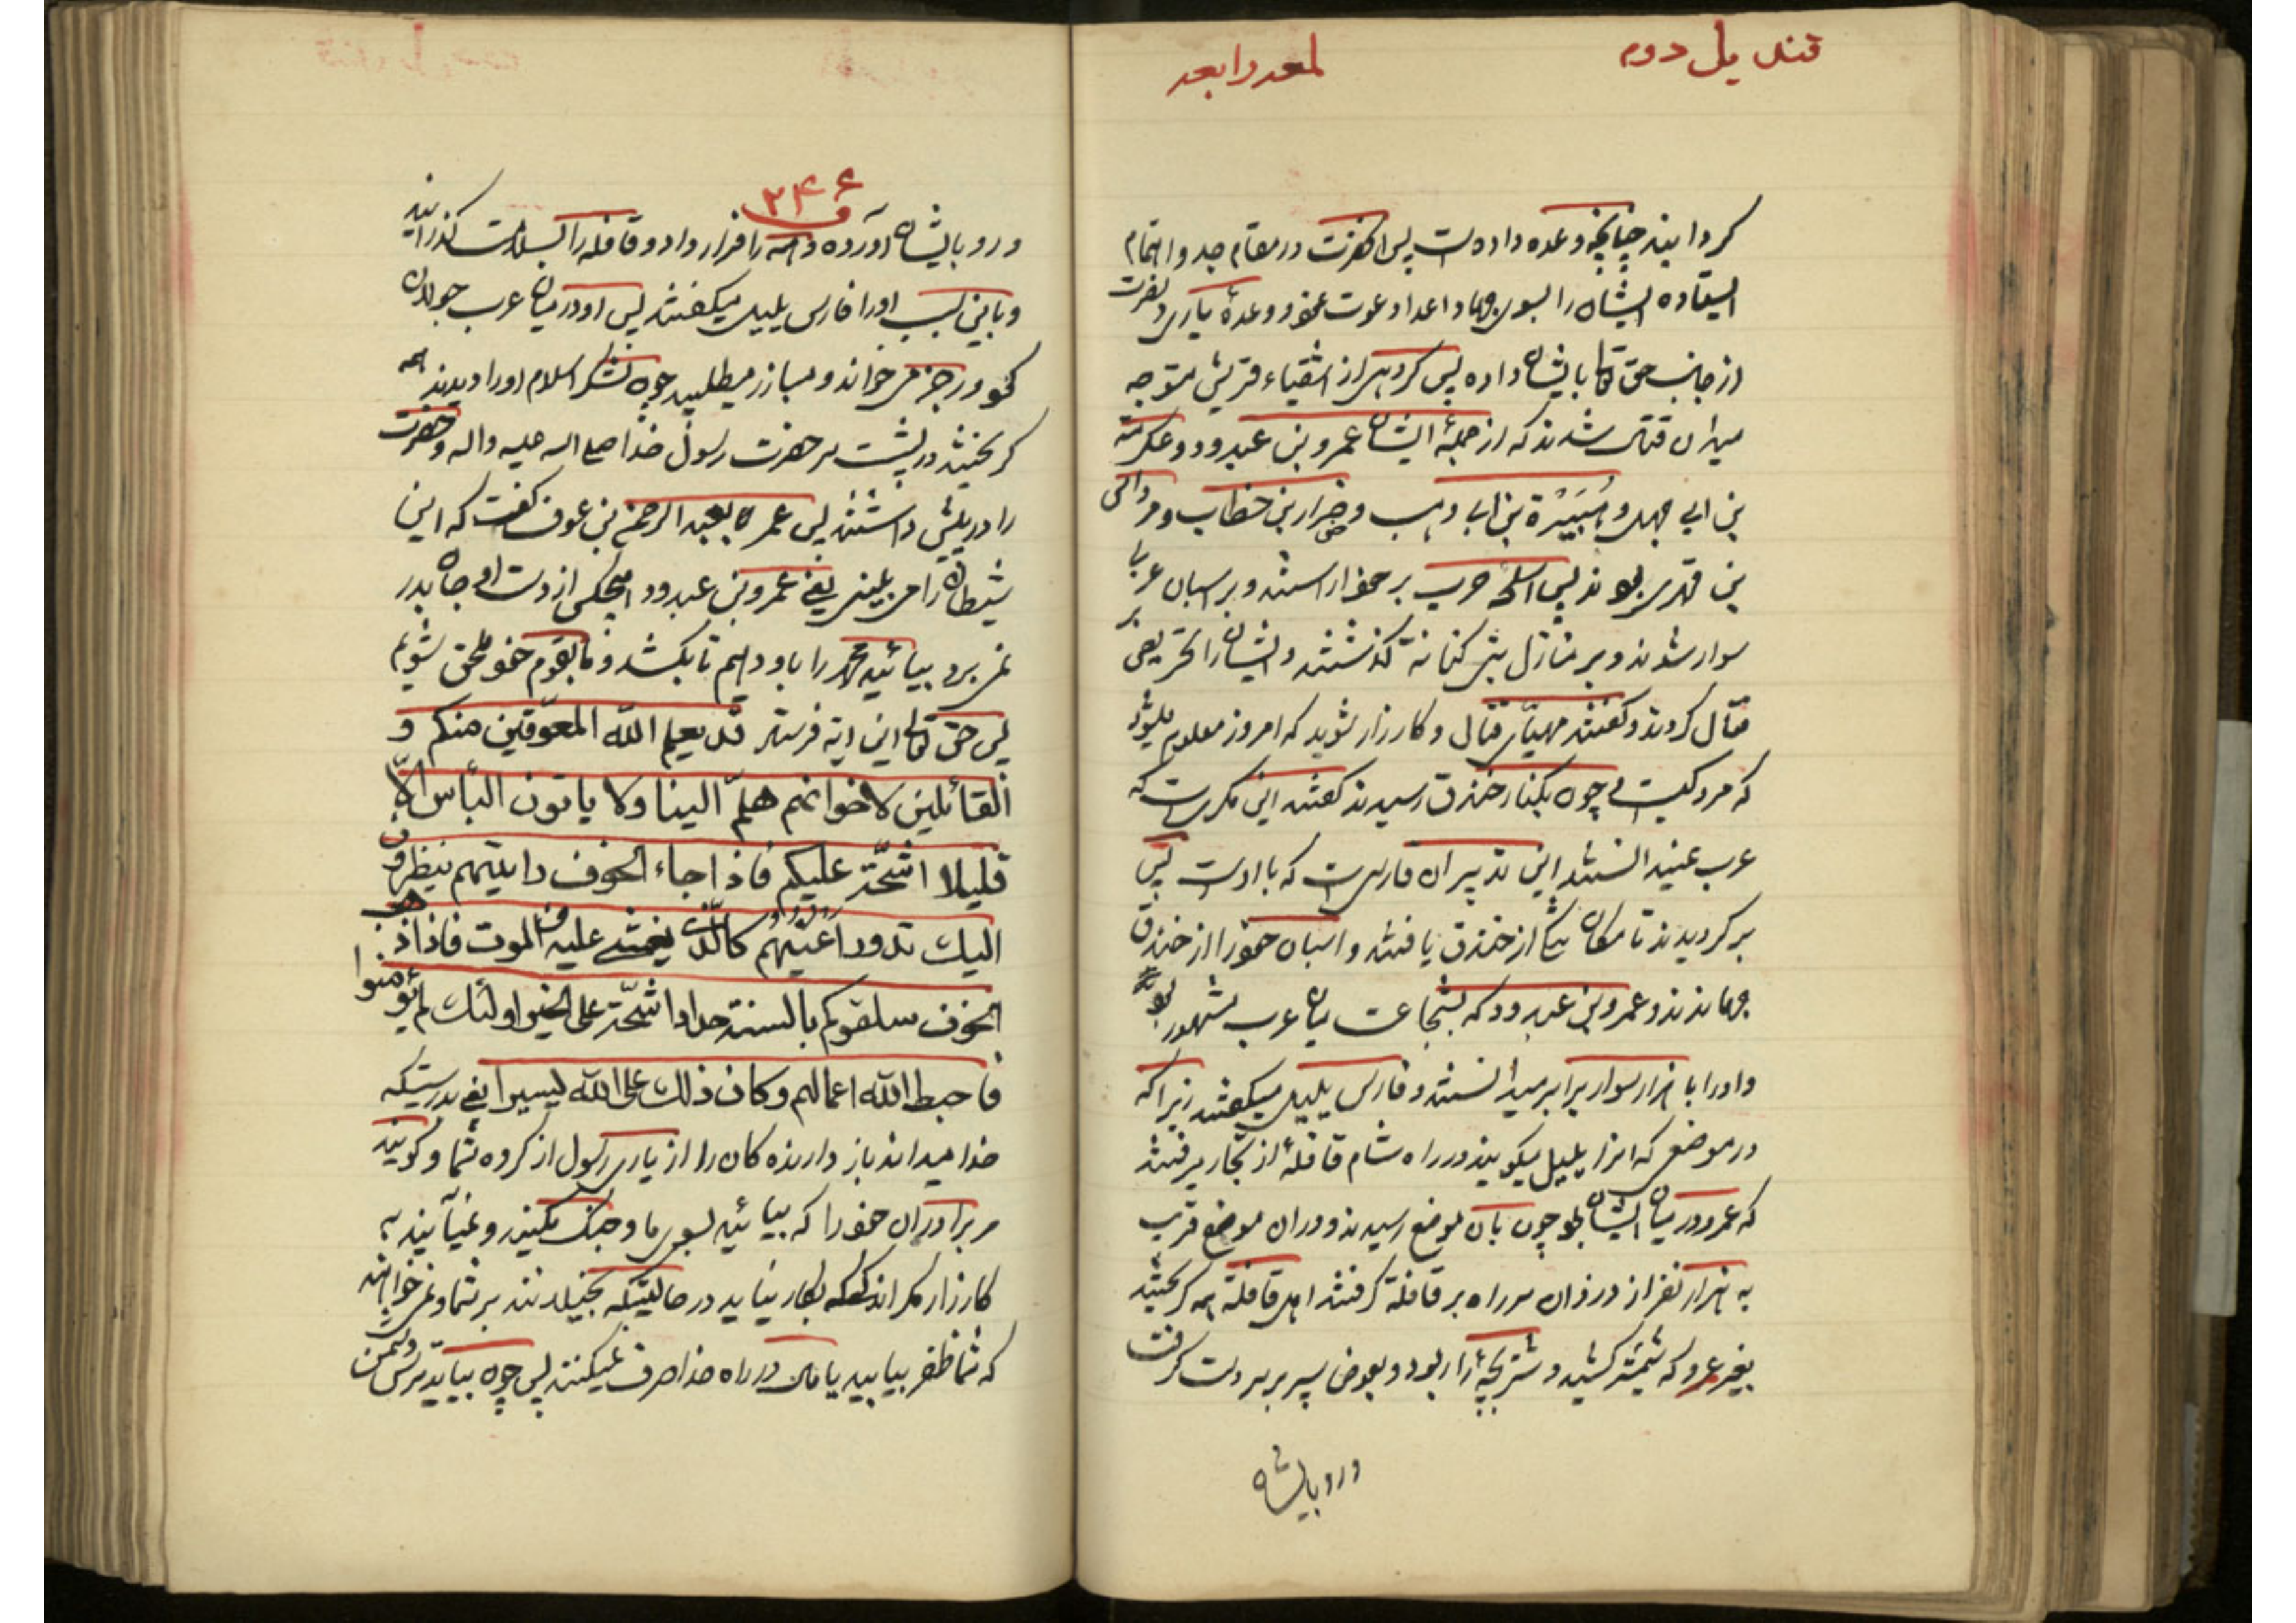 قندیل دوم
لمعه رابعه
کردانید چنانچه وعده داده است پس انحضرت در مقام جد و اهتمام
ایستاده ایشان را بسوی جهاد اعدا دعوت نمود و وعدهٔ یاری و نصرت
از جانب حق تعالی بایشان داده پس کروهی از اشقیاء قریش متوجه
میدان قتال شدند که از جملهٔ ایشان عمرو بن عبدود و عکرمة
بن ابی جهل و هُبَیْرَة بن ابی وهب و ضرار بن خطاب و مرداس
بن فهری بودند پس اسلحهٔ حرب بر خود اراستند و بر اسبان عربی
سوار شدند و بر منازل بنی کنانه کذشتند و ایشان را تحریص بر
قتال کردند و کفتند مهیّای قتال و کارزار شوید که امروز معلوم میشود
که مرد کیست و چون بکنار خندق رسیدند کفتند این مکریست که
عرب نمیدانستند این تدبیر ان فارسی است که با اوست پس
برکردیدند تا مکان تنکی از خندق یافتند و اسبان خود را از خندق
جهاندند و عمرو بن عبدود که بشجاعت میان عرب مشهور بود
و او را با هزار سوار برابر میدانستند و فارس یلیل میکفتند زیرا که
در موضعی که انرا یلیل میکویند در راه شام قافلهٔ از تجار میرفتند
که عمرو در میان ایشان بود چون بان موضع رسیدند و در ان موضع قریب
به هزار نفر از دزدان سر راه بر قافلة کرفتند اهل قافلة همه کریختند
بغیر عمرو که شمشیر کشید و شتر بچهٔ را ربود و بعوض سپر بر سر دست کرفت
و رو بایشان
۲۴۶
و رو بایشان آورده و همه را فرار داد و قافله را بسلامت کذرانید
و باین سبب او را فارس یلیل میکفتند پس او در میان عرب جولان
نمود و رجز می خواند و مبارز میطلبید چون لشکر اسلام او را دیدند همه
کریختند در پشت سر حضرت رسول خدا صلی الله علیه واله و حضرت
را در پیش داشتند پس عمر بعبد الرحمن بن عوف کفت که این
شیطان را می بینی یعنی عمرو بن عبدود هیچکس از دست او جان بدر
نمی برد بیائید محمد را باو دهیم تا بکشد و ما بقوم خود ملحق شویم
پس حق تعالی این ایه فرستاد قد یعلم الله المعوّقین منکم و
القائلین لاخوانهم هلمّ الینا ولا یاتون البأس الّا
قلیلا اشحّة علیکم فاذا جاء الخوف رایتهم ینظرون
الیک تدور اعینهم کالّذی یغشی علیه من الموت فاذا ذهب
الخوف سلقوکم بالسنة حداد اشحّة علی الخیر اولئک لم یؤمنوا
فاحبط الله اعمالهم وکان ذلک علی الله یسیرا یعنی بدرستیکه
خدا میداند باز دارنده کان را از یاری رسول از کروه شما و کویند
مر برادران خود را که بیائید بسوی ما و جنک مکنید و نمیآیند به
کارزار مکر اندکی که بکار نیاید در حالتیکه بخیلانند بر شما و نمی خواهند
که شما ظفر بیابید یا مالی در راه خدا صرف نمیکنند پس چون بیاید ترس دشمن